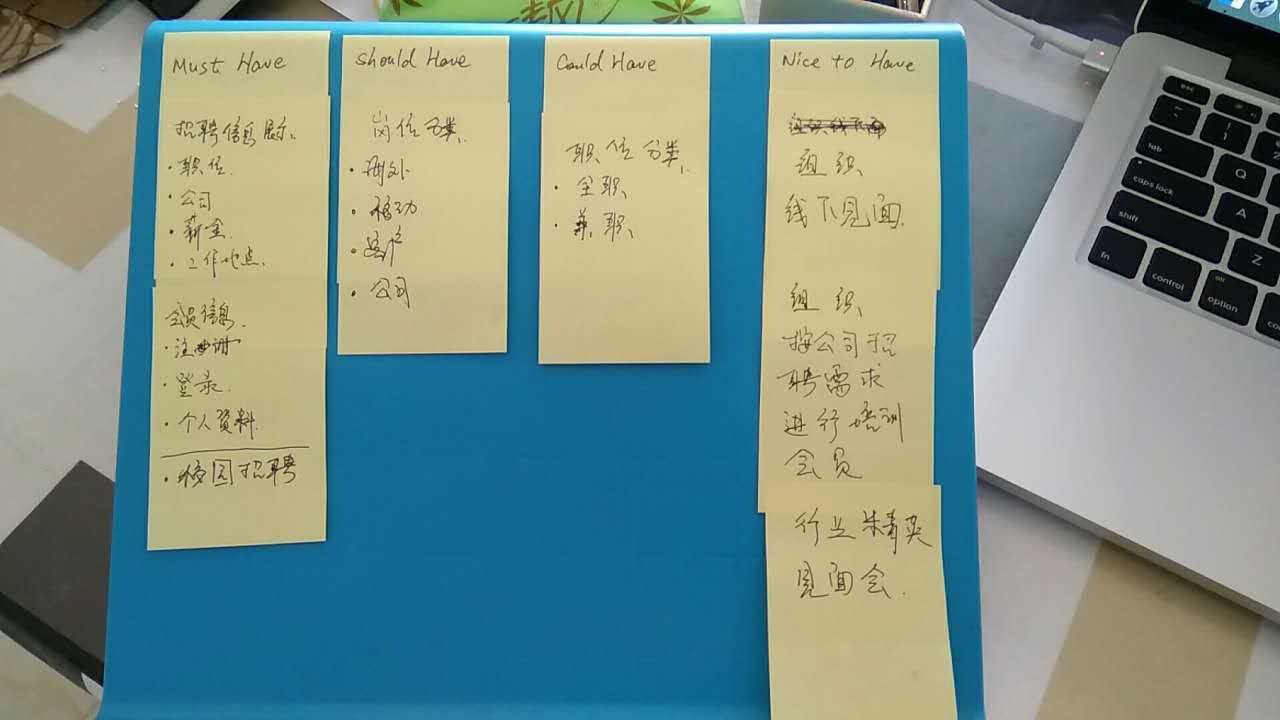 Must Have
招聘信息展示.
· 职位.
· 公司
· 薪金.
· 工作地点.
会员信息.
· 注册
· 登录.
· 个人资料.
· 校园招聘
Should Have
岗位分类.
· 移动
· 客户
· 公司
Could Have
职位分类.
· 全职、
· 兼职、
Nice to Have
组织
线下见面.
组织
按公司招
聘需求
进行培训
会员
行业精英
见面会.
esc
tab
Q
caps lock
A
shift
Z
fn
control
alt
option